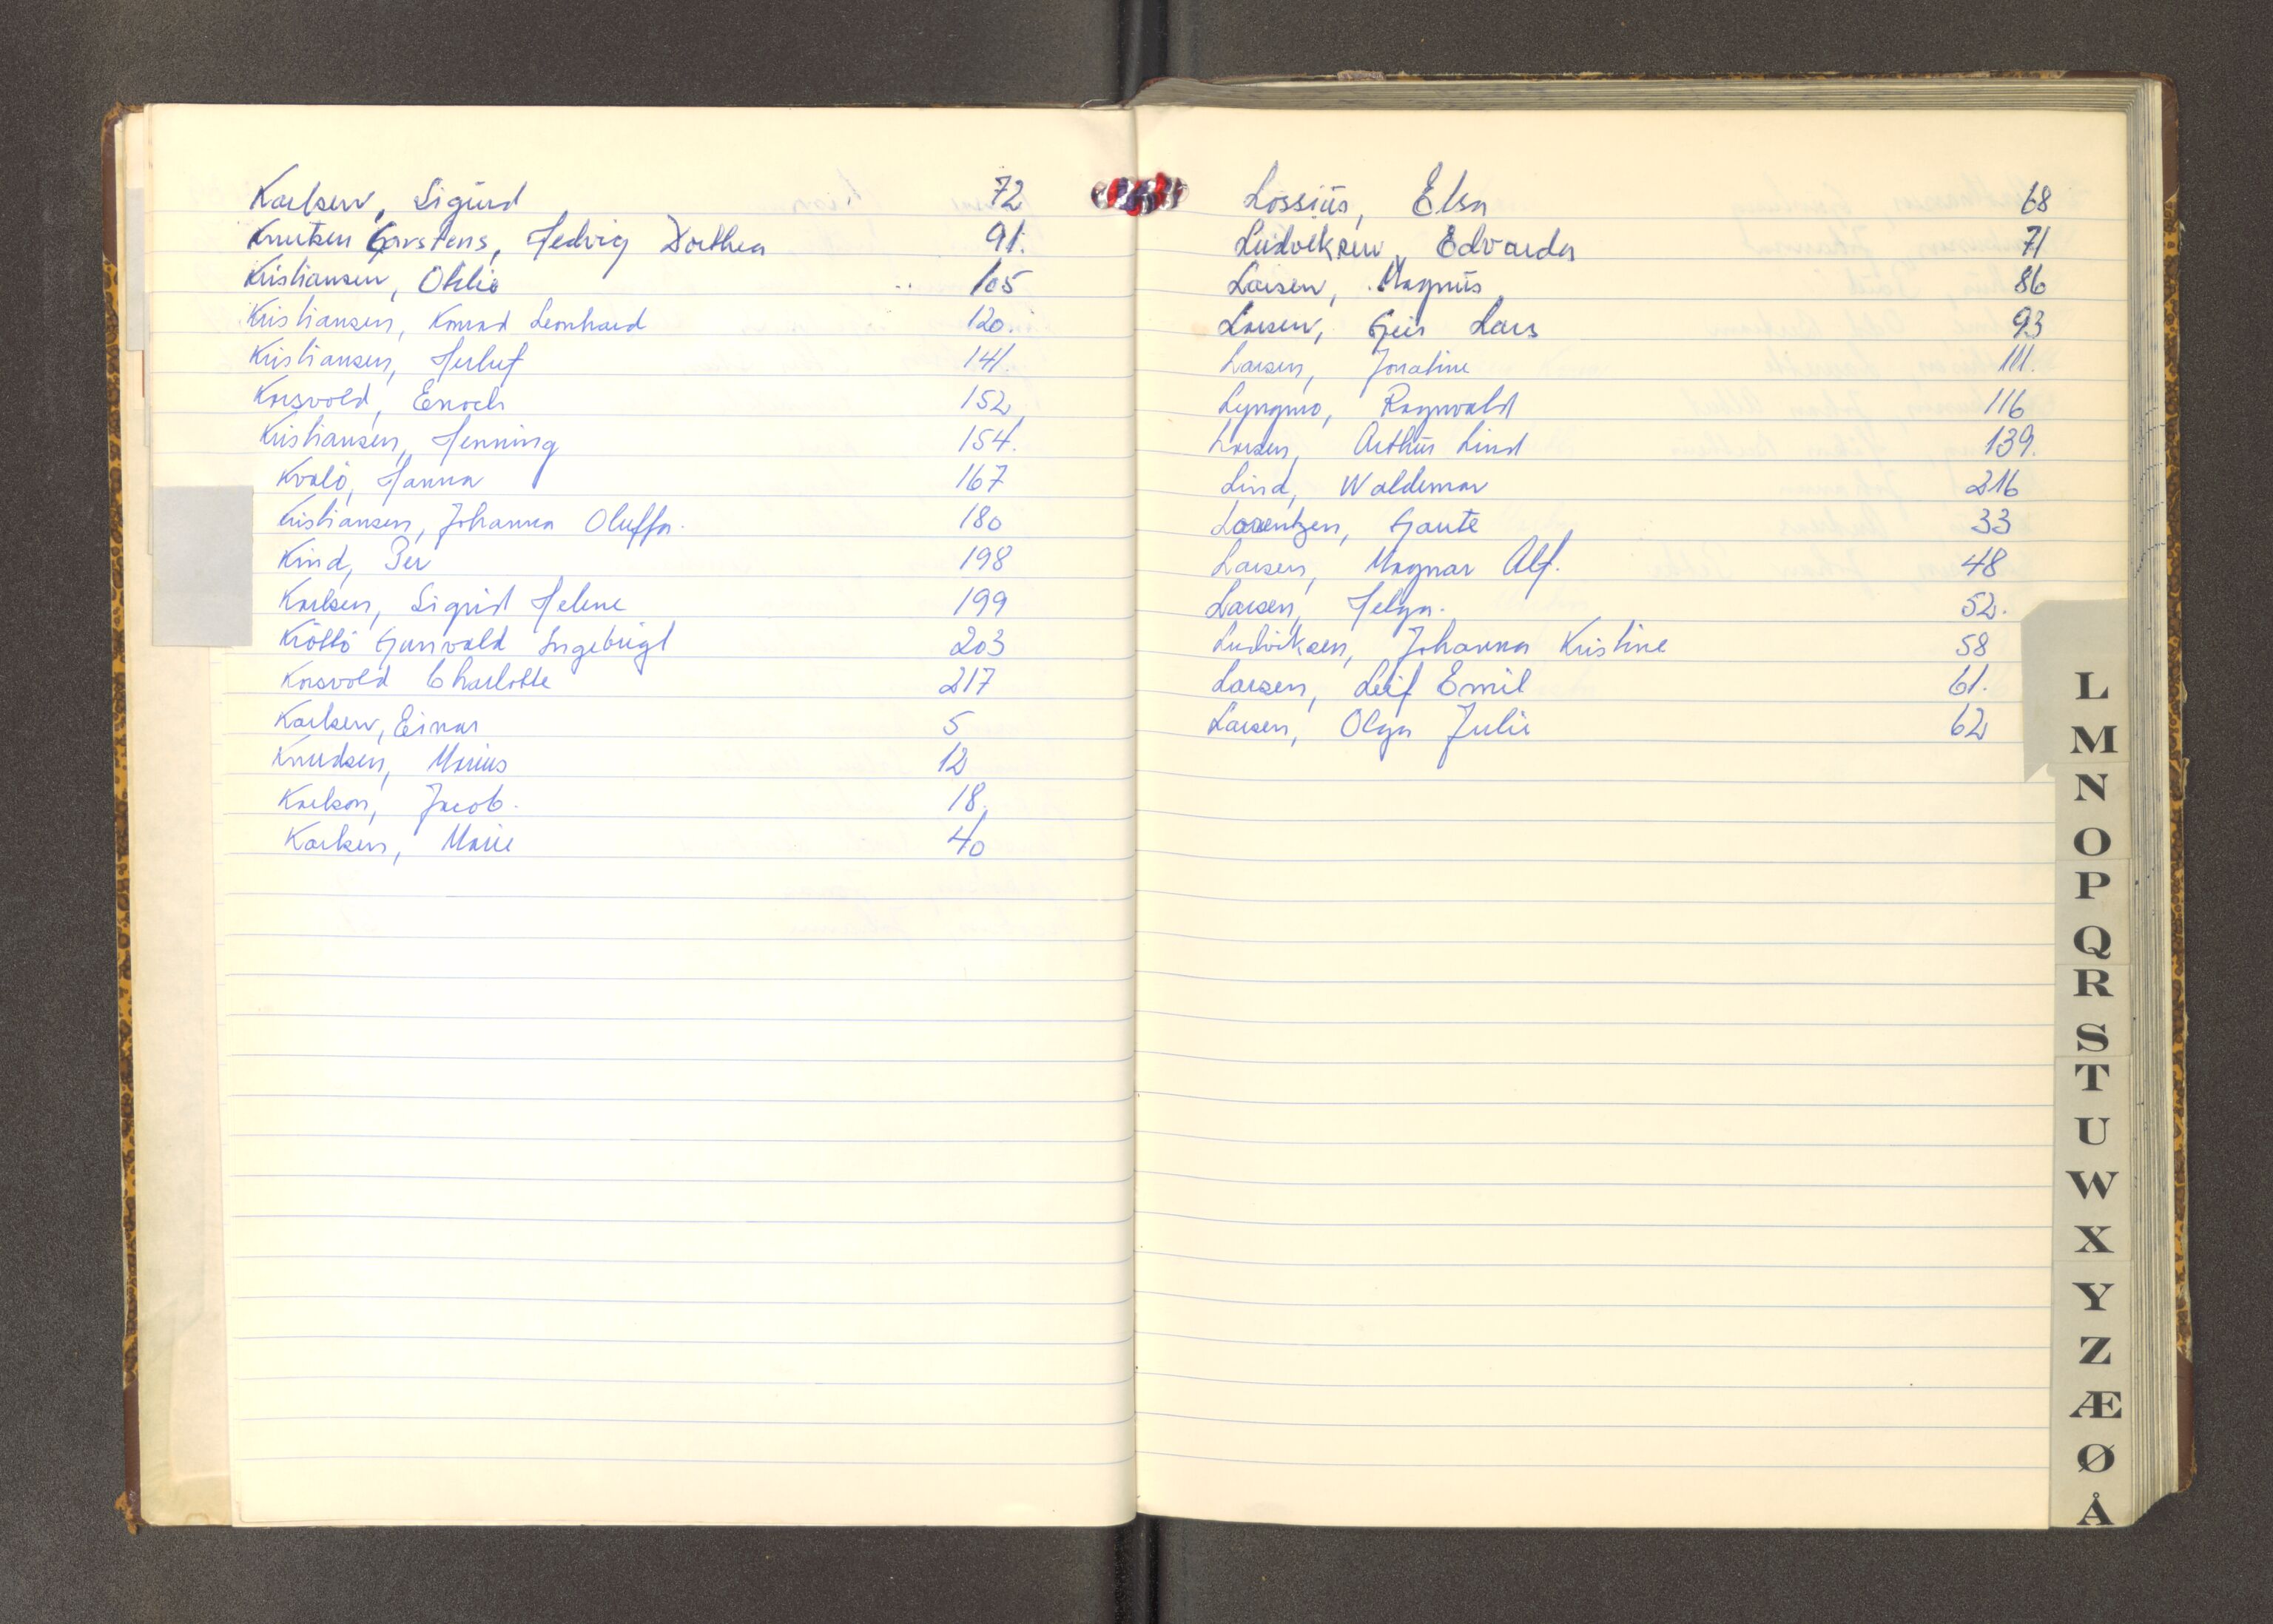 Karlsen, Sigurd 72
Knutsen Garstens, Hedvig Dorthea 91.
Kristiansen, Otelie 105
Kristiansen, Konrad Leonhard 120.
Kristiansen, Herluf 141.
Korsvold, Enoch 152
Kristiansen, Henning 154.
Kvalö, Hanna 167
Kristiansen, Johanna Oluffa. 180
Kind, Per 198
Karlsen, Sigrid Helene 199
Kröttö Gunvald Ingebrigt 203
Korsvold Charlotte 217
Karlsen, Einar 5
Knudsen, Marius 12
Karlson, Jacob. 18.
Karlsen, Marie 40
Lossius, Elsa 68
Ludviksen, Edvarda 71
Larsen, Magnus 86
Larsen, Geir Lars 93
Larsen, Jonatine 111.
Lyngmo, Ragnvald 116
Larsen, Arthur Lind 139.
Lind, Waldemar 216
Lorentzen, Gaute 33
Larsen, Magnar Alf. 48
Larsen, Helga. 52.
Ludviksen, Johanna Kristine 58
Larsen, Leif Emil 61.
Larsen, Olga Julie 62
L
M
N
O
P
Q
R
S
T
U
W
X
Y
Z
Æ
Ø
Å